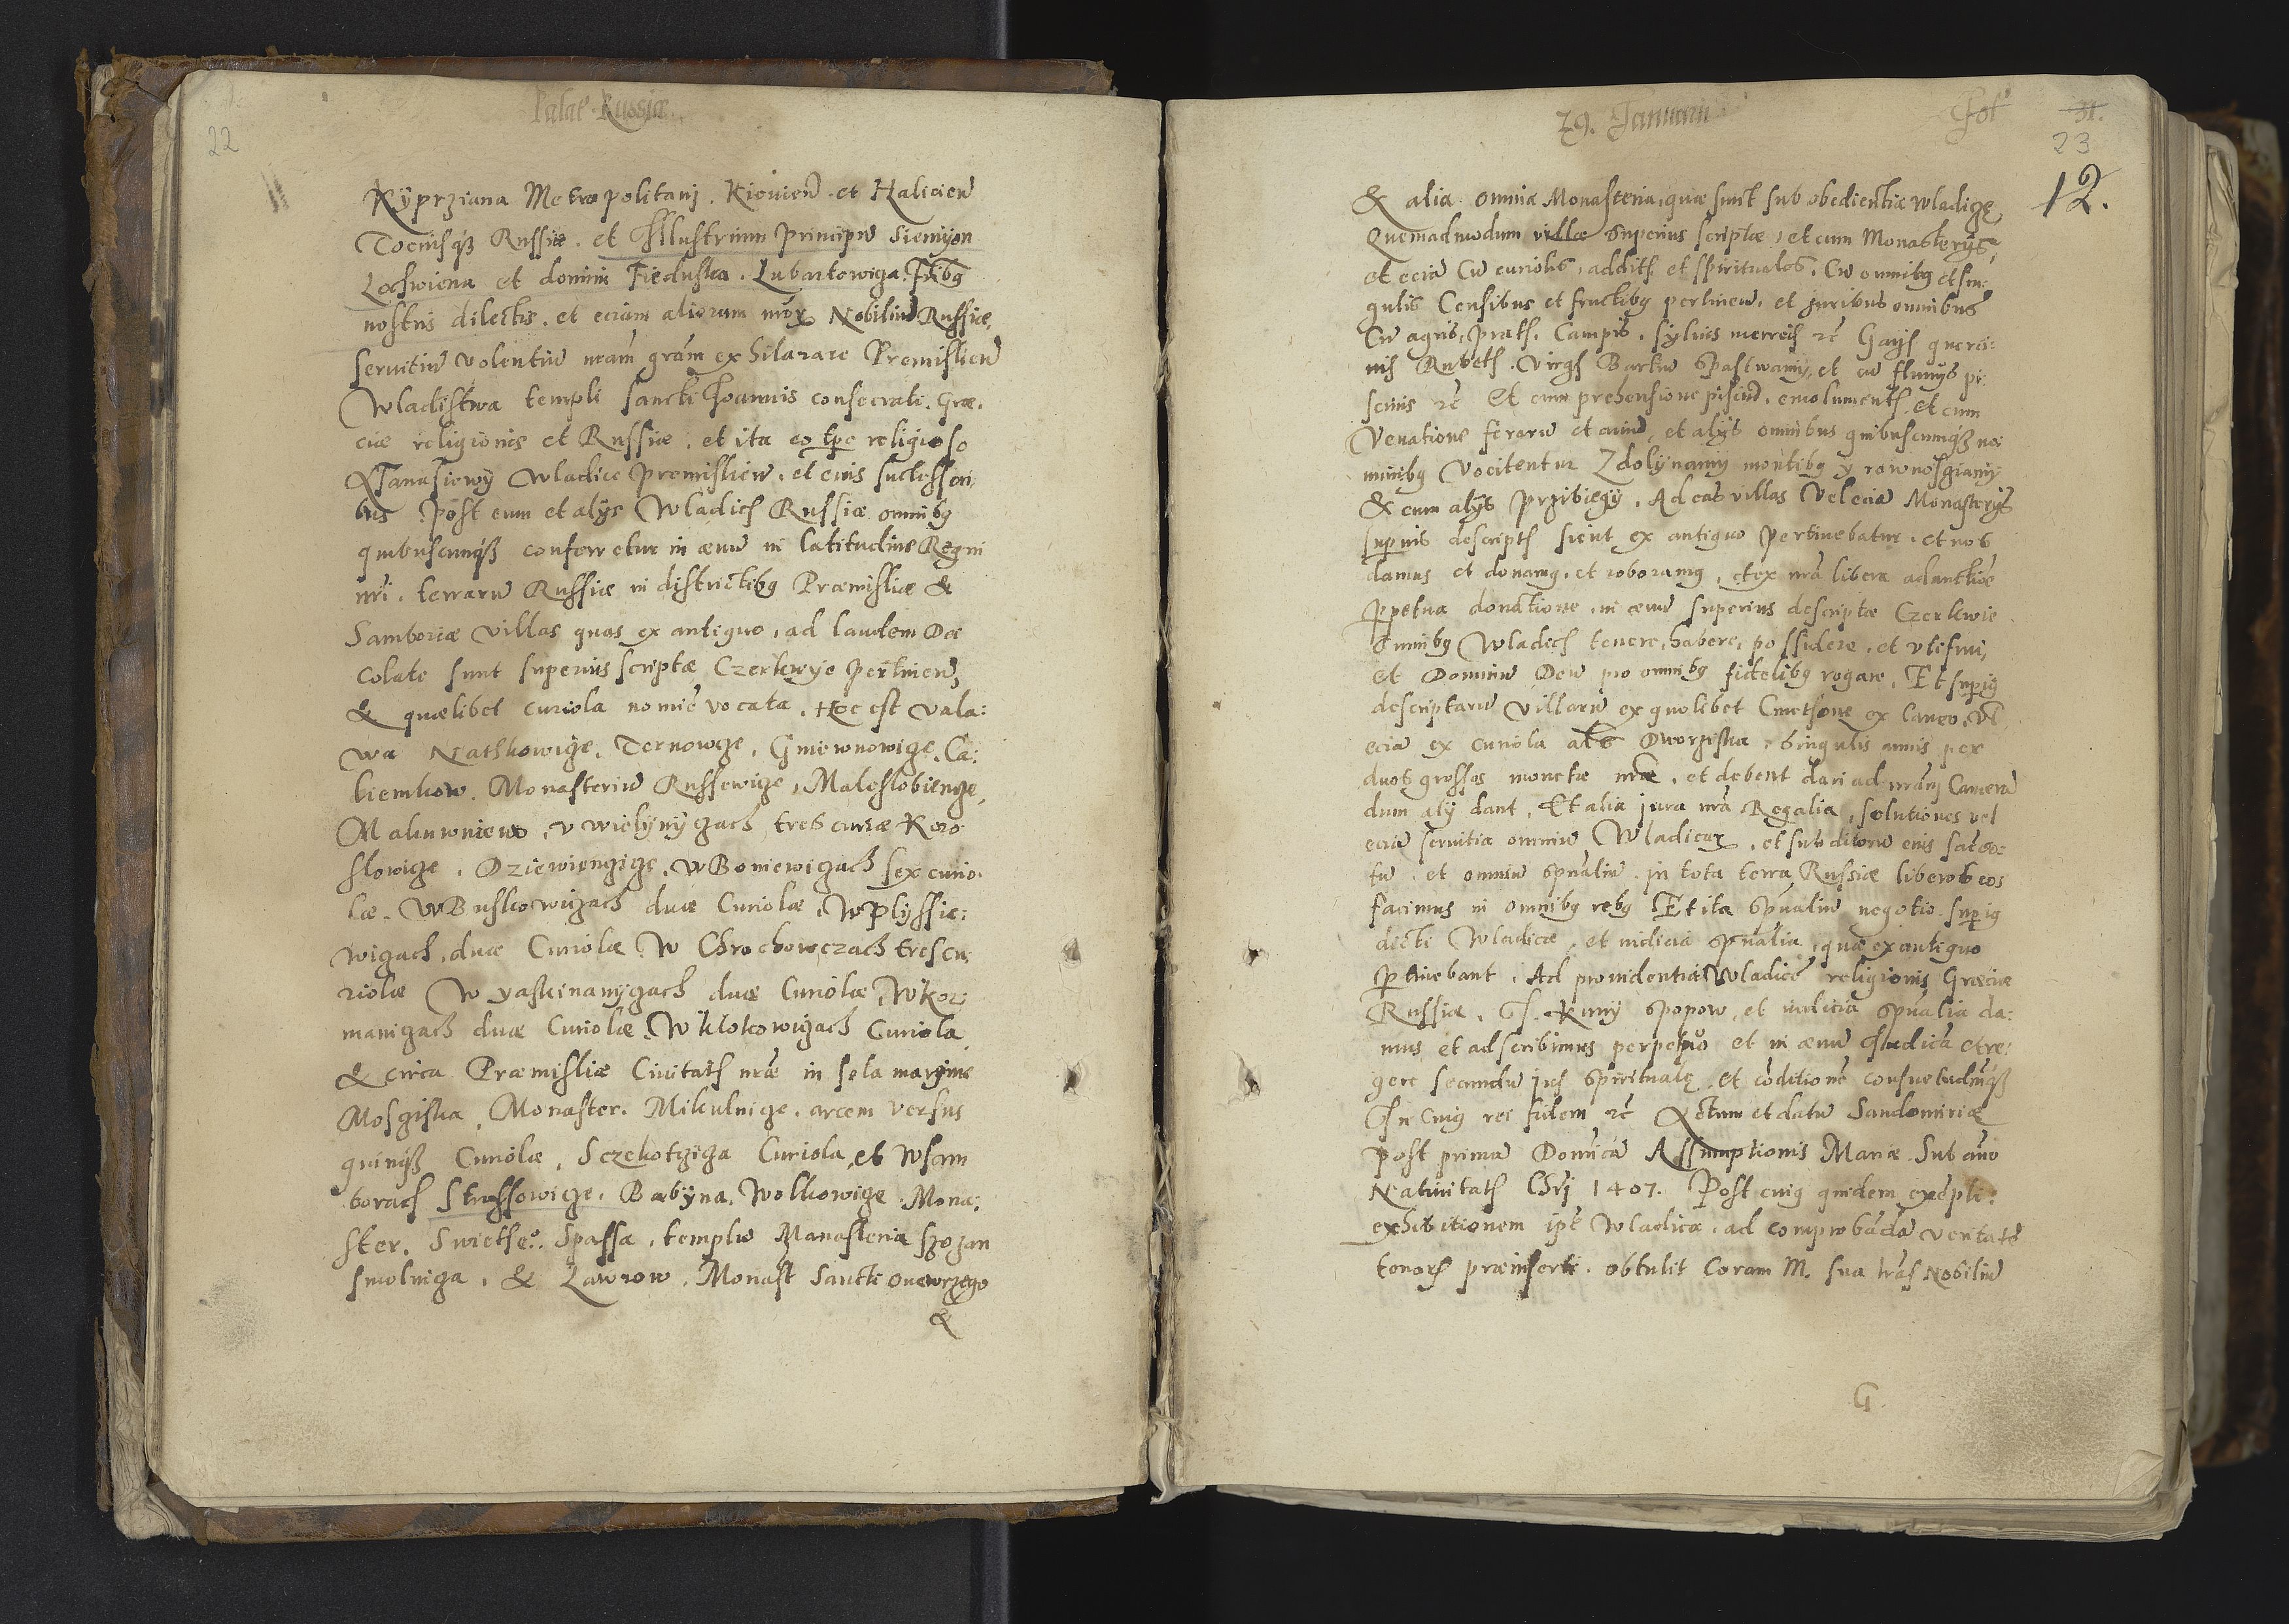 Palat. Russiæ
22
Kÿprziana Metropolitani. Kiovien̄ et Halicien̄
Tociusq́ꝫ Russiæ. et Illustrium Principū Siemÿon
Lochwiena et domini Fieduska. Lubartowiga, Frībꝯ
nostris dilectis. et eciam aliorum mōꝝ Nobiliū Russiæ,
seruitiū volentiū nram̄ gram̄ exhilarare Premislien̄
Wladistwa templi sancti Joannis consecrati. Græ.
ciæ religionis et Russiæ. et ita eo tp̄e religioso
Affanasiewÿ Wladice Premislien̄. et eius successori
bus Post eum et alÿs Wladicꝭ Russiæ omnibꝯ
quibuscunq́ꝫ conferretur in æuū in latitudine Regni
nrī. terrarū Russiæ in districtibꝯ Præmisliæ &
Samboriæ villas quas ex antiquo, ad laudem Dei
Colate sunt superius scriptæ Czerkwÿe pertinen̄,
& quælibet curiola nomīe vocata. Hoc est Vala:
wa Nathkowiġe. Ternowġe. Gniewnowiġe. Ca:
liemkow. Monasteriū Russewiġe, Maleslobienġe,
Makuwniewo, v wielÿnÿġach tres curiæ Koro
slowiġe. Dziewienġiġe. W Boniewiġach sex curio
læ. W Buskowiġach duæ Curiolæ. W Plÿssie:
wiġach, duæ Curiolæ W Chrochowczach tres cu:
riolæ W yaskinanÿġach duæ Curiolæ W Kor:
maniġach duæ Curiolæ. W Klokowiġach Curiola
& circa Præmisliæ Ciuitatꝭ nræ in sola margine
Mosġiska, Monaster. Mikulniġe. arcem versus
quinq́ꝫ Curiolæ, Sczekotġiġa Curiola, et W Sam
borach Strassowiġe. Babÿna. Wolkowiġe. Mona:
ster. Swietheo. Spassa. templū Manasteria Szozan
smolniġa. & Lawrow. Monast Sancti Onewrzego
&
29. Januarii
Fol 31.
23
12.
& alia omnia Monasteria, quæ sunt sub obedientia Wladiġe,
Quemadmodum villæ superius scriptæ, et cum Monasterÿs,
et eciā Cū curiolis, additꝭ et spirituales. Cū omnibꝯ et sin:
gulis Censibus et fructibꝯ pertinen̄. et juribus omnibus
Cū agris, pratꝭ. Campis. sÿluis mericꝭ &c̄ Gaijꝭ querci:
nis Rubetꝭ. Virgꝭ Bartiū Spastwamÿ, et cū fluuÿs pi:
scinis &c̄ Et cum prehensione pisciū. emolumentꝭ. et cum
Venatione ferarū et auiū, et alÿs omnibus quibuscunq́ꝫ no
minibꝯ Vocitentur Z dolÿnamÿ montibꝯ y rownosġiamÿ
& cum alÿs Przibiegÿ. Ad eas villas Vel eciā Monasterÿs
superius descriptꝭ sicut ex antiquo pertinebatur. et nos
damus et donamꝯ. et roboramꝯ, et ex nrā libera ad auctiōe
ꝑpetua donatione in æuū superius descriptæ Czerkwie
omnibꝯ Wladicꝭ tenere, habere, possidere, et vtifrui,
et Dominū Deū pro omnibꝯ fidelibꝯ rogare. Et superiꝯ
descriptarū Villarū ex quolibet Cmethone ex laneo, vel
eciā ex curiola als Dworziska. singulis annis per
duos grossos monetæ nræ. et debent dari ad nrām Camerā
dum alÿ dant. Et alia jura nrā Regalia, solutiones vel
eciā seruitia omniū Wladicaꝝ, et subditorū eius sacerdo:
tū. et omniū spūaliū. in tota terra Russiæ liberos eos
facimus in omnibꝯ rebꝯ Et ita spūaliū negotio. superiꝯ
dicti Wladicæ, et iudicia spūalia, quæ ex antiquo
ꝑtinebant. Ad prouidentiā Wladicē religionis Græciæ
Russiæ. Js. Kunÿ spopow, et iudicia spūalia da:
mus et adscribimus perpetuo et in æuū Judicā et re:
gere secundū jus spirituale. et cōditionē consuetudinēq́ꝫ
In cuiꝯ rei fidem &c̄ Actum et datū Sandomiriæ
post primā Dominicā Assumptionis Mariæ. Sub anno
Natiuitatꝭ Chrī 1407. Post cuiꝯ quidem exēpli.
exhibitionem ip̄e Wladica. ad comprobādā veritatē
tenorꝭ præinserti. obtulit Coram M. sua lras̄ Nobiliū
G